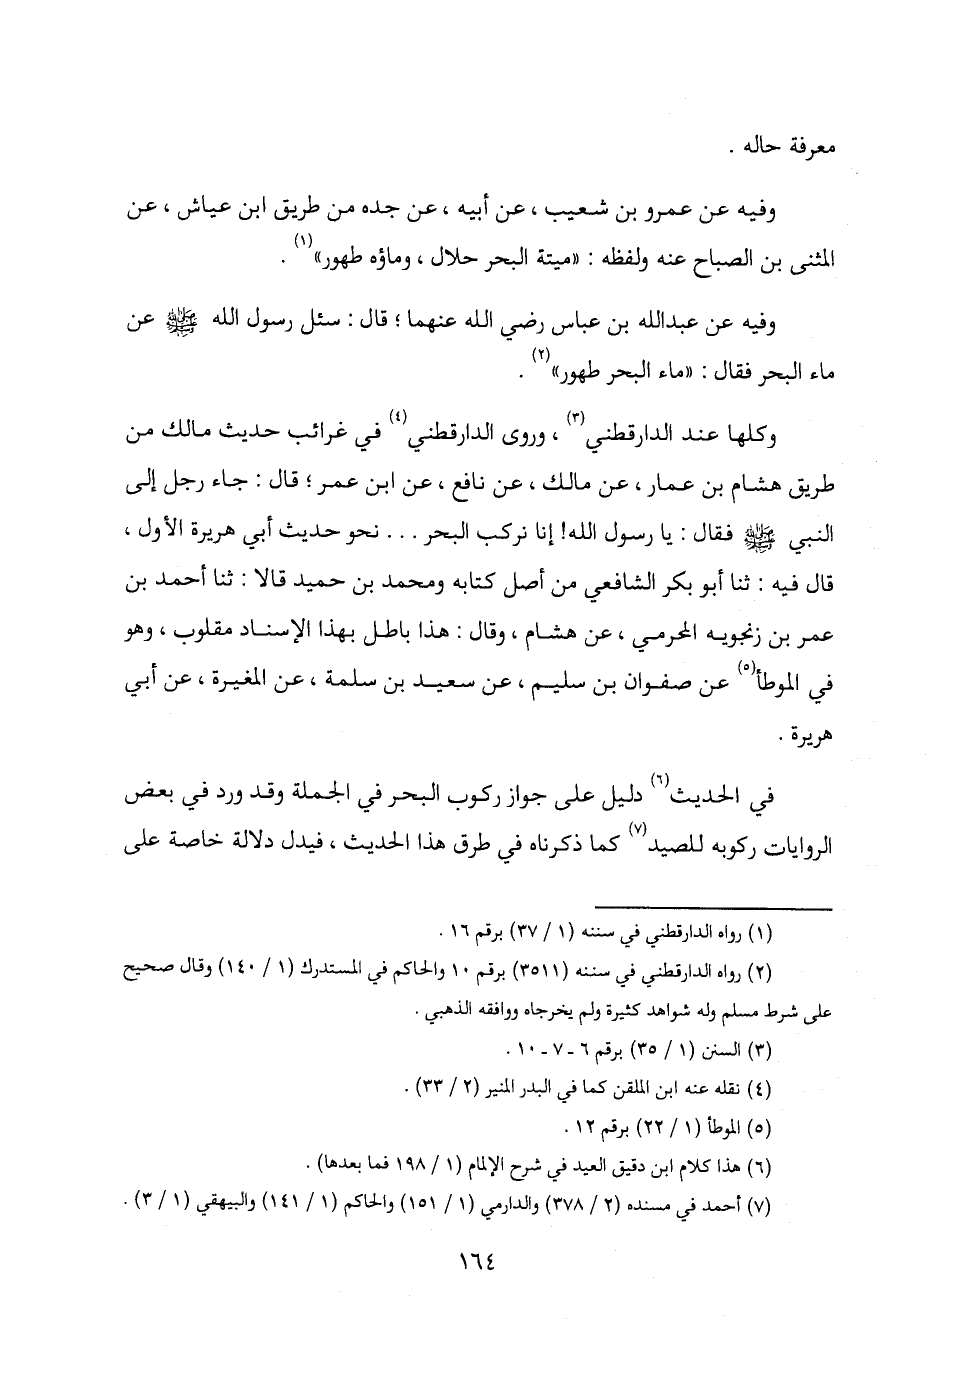 معرفة حاله .
وفيه عن عمرو بن شعيب ، عن أبيه ، عن جده من طريق ابن عياش ، عن
المثنى بن الصباح عنه ولفظه : «ميتة البحر حلال ، وماؤه طهور»(١) .
وفيه عن عبدالله بن عباس رضي الله عنهما ؛ قال : سئل رسول الله ﷺ عن
ماء البحر فقال : «ماء البحر طهور»(٢) .
وكلها عند الدارقطني(٣) ، وروى الدارقطني(٤) في غرائب حديث مالك من
طريق هشام بن عمار ، عن مالك ، عن نافع ، عن ابن عمر ؛ قال : جاء رجل إلى
النبي ﷺ فقال : يا رسول الله! إنا نركب البحر ... نحو حديث أبي هريرة الأول ،
قال فيه : ثنا أبو بكر الشافعي من أصل كتابه ومحمد بن حميد قالا : ثنا أحمد بن
عمر بن زنجويه المخرمي ، عن هشام ، وقال : هذا باطل بهذا الإسناد مقلوب ، وهو
في الموطأ(٥) عن صفوان بن سليم ، عن سعيد بن سلمة ، عن المغيرة ، عن أبي
هريرة .
في الحديث(٦) دليل على جواز ركوب البحر في الجملة وقد ورد في بعض
الروايات ركوبه للصيد(٧) كما ذكرناه في طرق هذا الحديث ، فيدل دلالة خاصة على
(١) رواه الدارقطني في سننه (١ / ٣٧) برقم ١٦ .
(٢) رواه الدارقطني في سننه (٣٥١١) برقم ١٠ والحاكم في المستدرك (١ / ١٤٠) وقال صحيح
على شرط مسلم وله شواهد كثيرة ولم يخرجاه ووافقه الذهبي .
(٣) السنن (١ / ٣٥) برقم ٦ - ٧ - ١٠ .
(٤) نقله عنه ابن الملقن كما في البدر المنير (٢ / ٣٣) .
(٥) الموطأ (١ / ٢٢) برقم ١٢ .
(٦) هذا كلام ابن دقيق العيد في شرح الإلمام (١ / ١٩٨ فما بعدها) .
(٧) أحمد في مسنده (٢ / ٣٧٨) والدارمي (١ / ١٥١) والحاكم (١ / ١٤١) والبيهقي (١ / ٣) .
١٦٤